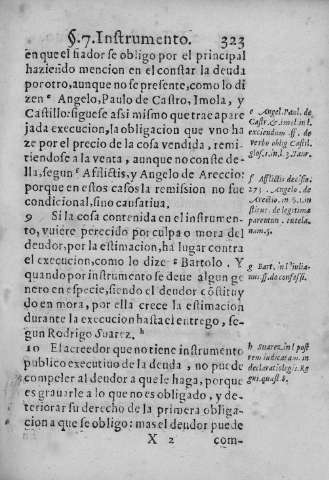 §. 7. Instrumento. 323
en que el fiador se obligo por el principal
haziendo mencion en el constar la deuda
por otro, aunque no se presente, como lo di
zen e Angelo, Paulo de Castro, Imola, y
Castillo: siguese assi mismo que trae apare
jada execucion, la obligacion que vno ha
ze por el precio de la cosa vendida, remi-
tiendose a la venta, aunque no conste de-
lla, segun f Afflictis, y Angelo de Areccio:
porque en estos casos la remission no sue
condicional, sino causatiua.
9 Si la cosa contenida en el instrumen-
to, vuiere perecido por culpa o mora del
deudor, por la estimacion, ha lugar contra
el execucion, como lo dize g Bartolo. Y
quando por instrumento se deue algun ge
nero en especie, siendo el deudor cõstituy
do en mora, por ella crece la estimacion
durante la execucion hasta el entrego, se-
gun Rodrigo Suarez. h
10 El acreedor que no tiene instrumento
publico executiuo de la deuda, no puede
compeler al deudor a que le haga, porque
es grauarle a lo que no es obligado, y de-
teriorar su derecho de la primera obliga-
cion a que se obligo: mas el deudor puede
X 2 com-
e Angel. Paul. de
Castr. & Imol. in l.
exciendum ff. de
verbo oblig Castil.
glos. 1. in l. 3. Taur.
f Afflictis decisio.
273. Angelo. de
Arectio. in §. 1. in
stitut. de legitima
parentum. tutela.
num. 5.
g Bart. in l. iulia-
nus. ff. de confessis.
h Suarez. in l. post
rem iudicatam. in
declaratio legis. Re
gni. quæst. 8.